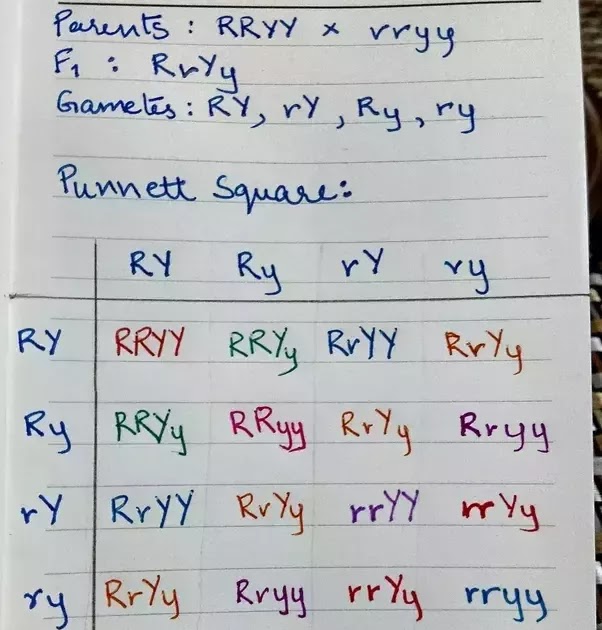 Parents : RRYY x rryy
F1 : RrYy
Gametes : RY, rY, Ry, ry
Punnett Square:
RY Ry rY ry
RY RRYY RRYy RrYY RrYy
Ry RRYy RRyy RrYy Rryy
rY RrYY RrYy rrYY rrYy
ry RrYy Rryy rrYy rryy